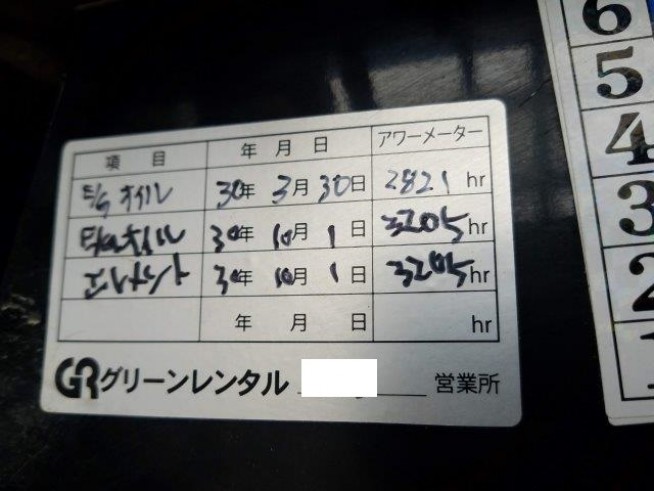 項 目 年 月 日 アワーメーター
E/G オイル 30年 3月 30日 2821 hr
オイル 30年 10月 1日 3205 hr
エレメント 30年 10月 1日 3205 hr
年 月 日 hr
GR グリーンレンタル 営業所
6
5
4
3
2